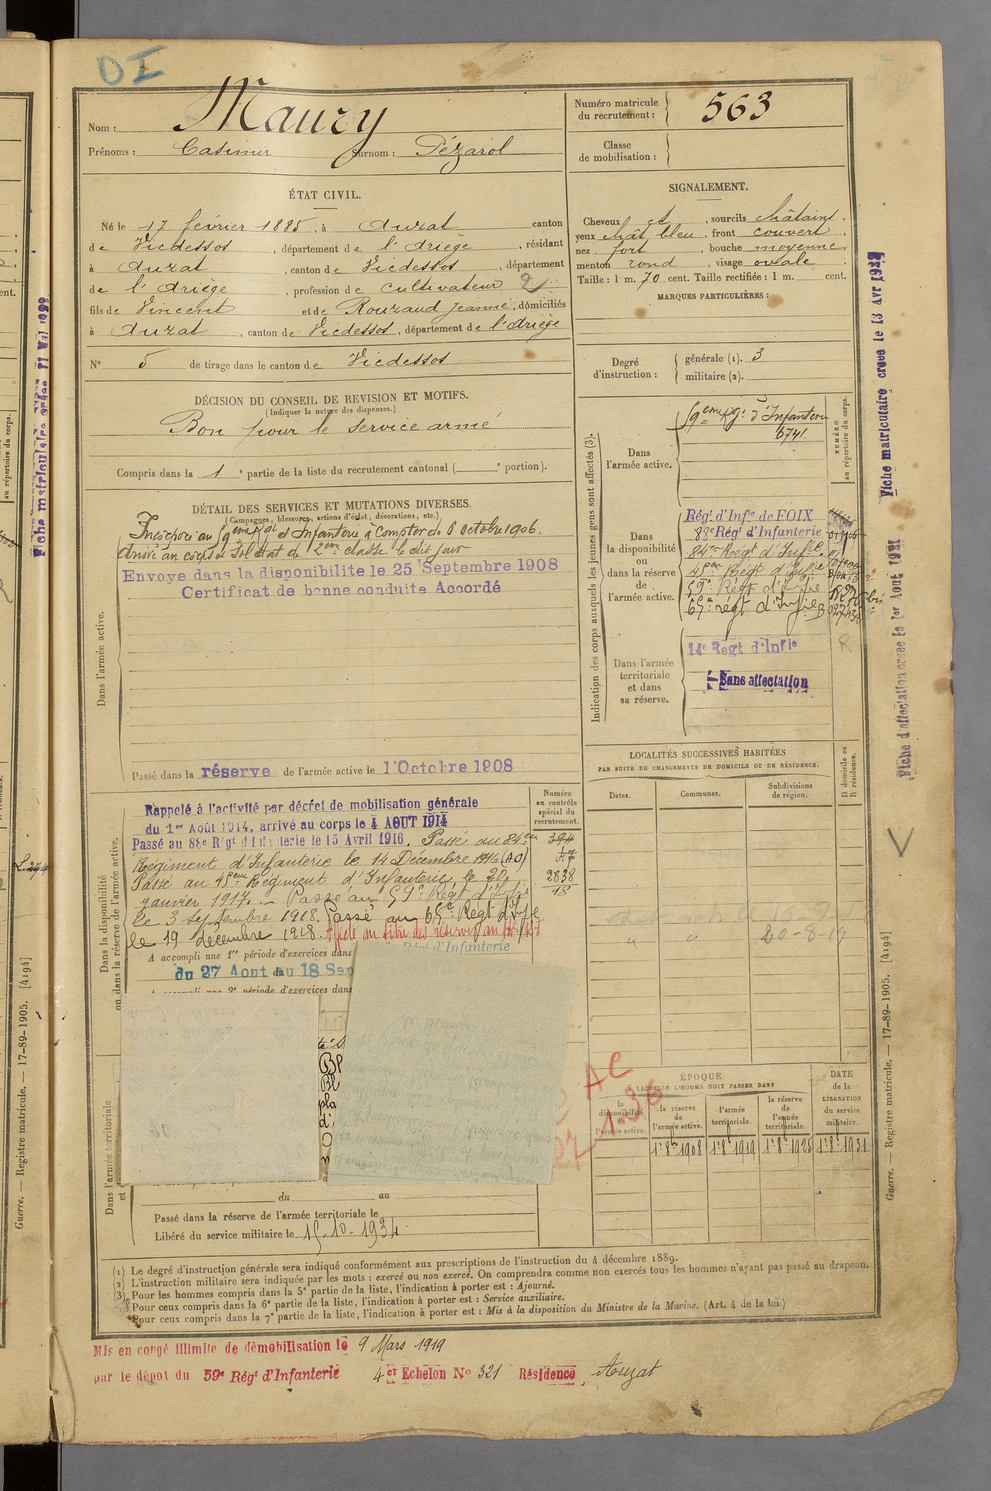 OI
Nom : Maury
Prénoms : Casimir Surnom : Pézarol
Numéro matricule du recrutement : 563
Classe de mobilisation :
ÉTAT CIVIL.
Né le 17 février 1885, à Auzat canton
de Vicdessos, département de l'Ariège, résidant
à Auzat, canton de Vicdessos, département
de l'Ariège, profession de Cultivateur 2
fils de Vincent et de Rouzaud Jeanne, domiciliés
à Auzat, canton de Vicdessos, département de l'Ariège
N° 5 de tirage dans le canton de Vicdessos
SIGNALEMENT.
Cheveux et, sourcils châtains.
yeux chât bleu, front couvert,
nez fort, bouche moyenne
menton rond, visage ovale.
Taille : 1 m. 70 cent. Taille rectifiée : 1 m. cent.
MARQUES PARTICULIÈRES :
Degré d'instruction : générale (1). 3
militaire (2).
DÉCISION DU CONSEIL DE REVISION ET MOTIFS.
(Indiquer la nature des dispenses.)
Bon pour le service armé
Compris dans la 1e partie de la liste du recrutement cantonal (e portion).
DÉTAIL DES SERVICES ET MUTATIONS DIVERSES.
(Campagnes, blessures, actions d'éclat, décorations, etc.)
Incorporé au 59eme Rgt d'Infanterie à compter du 8 octobre 1906.
Arrivé au corps et soldat de 2eme classe le dit jour
Envoye dans la disponibilite le 25 Septembre 1908
Certificat de bonne conduite Accordé
Dans l'armée active.
Passé dans la réserve de l'armée active le 1 Octobre 1908
Indication des corps auxquels les jeunes gens sont affectés (3).
NUMÉRO au répertoire du corps.
Dans l'armée active.
59eme Rgt d'Infanterie
6741
Dans la disponibilité ou dans la réserve de l'armée active.
Régt d'Infie de FOIX
88e Régt d'Infanterie
84eme Régt d'Infie
4eme Régt d'Infie
59e Régt d'Infie
65e régt d'Infie
Dans l'armée territoriale et dans sa réserve.
14e Regt d'Infie
Sans affectation
R
LOCALITÉS SUCCESSIVES HABITÉES
PAR SUITE DE CHANGEMENTS DE DOMICILE OU DE RÉSIDENCE.
Dates. Communes. Subdivisions de région. D domicile ou R résidence.
20-8-19
Dans la disponibilité ou dans la réserve de l'armée active.
Numéro au contrôle spécial du recrutement.
394
2838
18
Rappelé à l'activité par décret de mobilisation générale
du 1er Août 1914, arrivé au corps le 4 AOUT 1914
Passé au 88e Régt d'Infanterie le 15 Avril 1916. Passé au 84eme
Régiment d'Infanterie le 14 Décembre 1916 (AO)
Passé au 4eme Régiment d'Infanterie le 20
janvier 1917. — Passé au 59e Régt d'Infie
le 3 Septembre 1918. Passé au 65e Régt d'Infie
le 19 décembre 1918.
A accompli une 1re période d'exercices dans
Régt d'Infanterie
du 27 Aout au 18 Sep
A accompli une 2e période d'exercices dans
Dans l'armée territoriale
du au
Passé dans la réserve de l'armée territoriale le
Libéré du service militaire le 15-10-1934
AC
1-36
ÉPOQUE
À LAQUELLE L'HOMME DOIT PASSER DANS
DATE de la LIBÉRATION du service militaire.
la disponibilité de l'armée active.
la réserve de l'armée active.
l'armée territoriale.
la réserve de l'armée territoriale.
1r 8bre 1908 1r 8bre 1919 1r 8bre 1925 1r 8bre 1931
(1) Le degré d'instruction générale sera indiqué conformément aux prescriptions de l'instruction du 4 décembre 1889.
(2) L'instruction militaire sera indiquée par les mots : exercé ou non exercé. On comprendra comme non exercés tous les hommes n'ayant pas passé au drapeau.
(3) Pour les hommes compris dans la 5e partie de la liste, l'indication à porter est : Ajourné.
Pour ceux compris dans la 6e partie de la liste, l'indication à porter est : Service auxiliaire.
Pour ceux compris dans la 7e partie de la liste, l'indication à porter est : Mis à la disposition du Ministre de la Marine. (Art. 4 de la loi.)
Mis en congé illimité de démobilisation le 9 Mars 1919
par le dépot du 59e Régt d'Infanterie 4er Echelon No 321 Résidence Auzat
Fiche matriculaire créée le 13 Avr
Fiche d'affectation créée le 1er Aout 1921
Guerre. — Registre matricule. — 17-89-1905. [4194]
Guerre. — Registre matricule. — 17-89-1905. [4194]
au répertoire du corps.